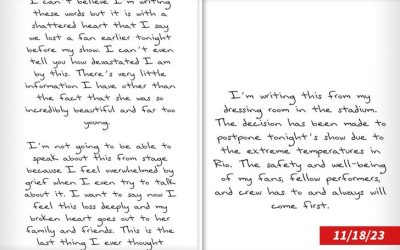 I can't believe I'm writing
these words but it is with a
shattered heart that I say
we lost a fan earlier tonight
before my show. I can't even
tell you how devastated I am
by this. There's very little
information I have other than
the fact that she was so
incredibly beautiful and far too
young.
I'm not going to be able to
speak about this from stage
because I feel overwhelmed by
grief when I even try to talk
about it. I want to say now I
feel this loss deeply and my
broken heart goes out to her
family and friends. This is the
last thing I ever thought
I'm writing this from my
dressing room in the stadium.
The decision has been made to
postpone tonight's show due to
the extreme temperatures in
Rio. The safety and well-being
of my fans, fellow performers,
and crew has to and always will
come first.
11/18/23